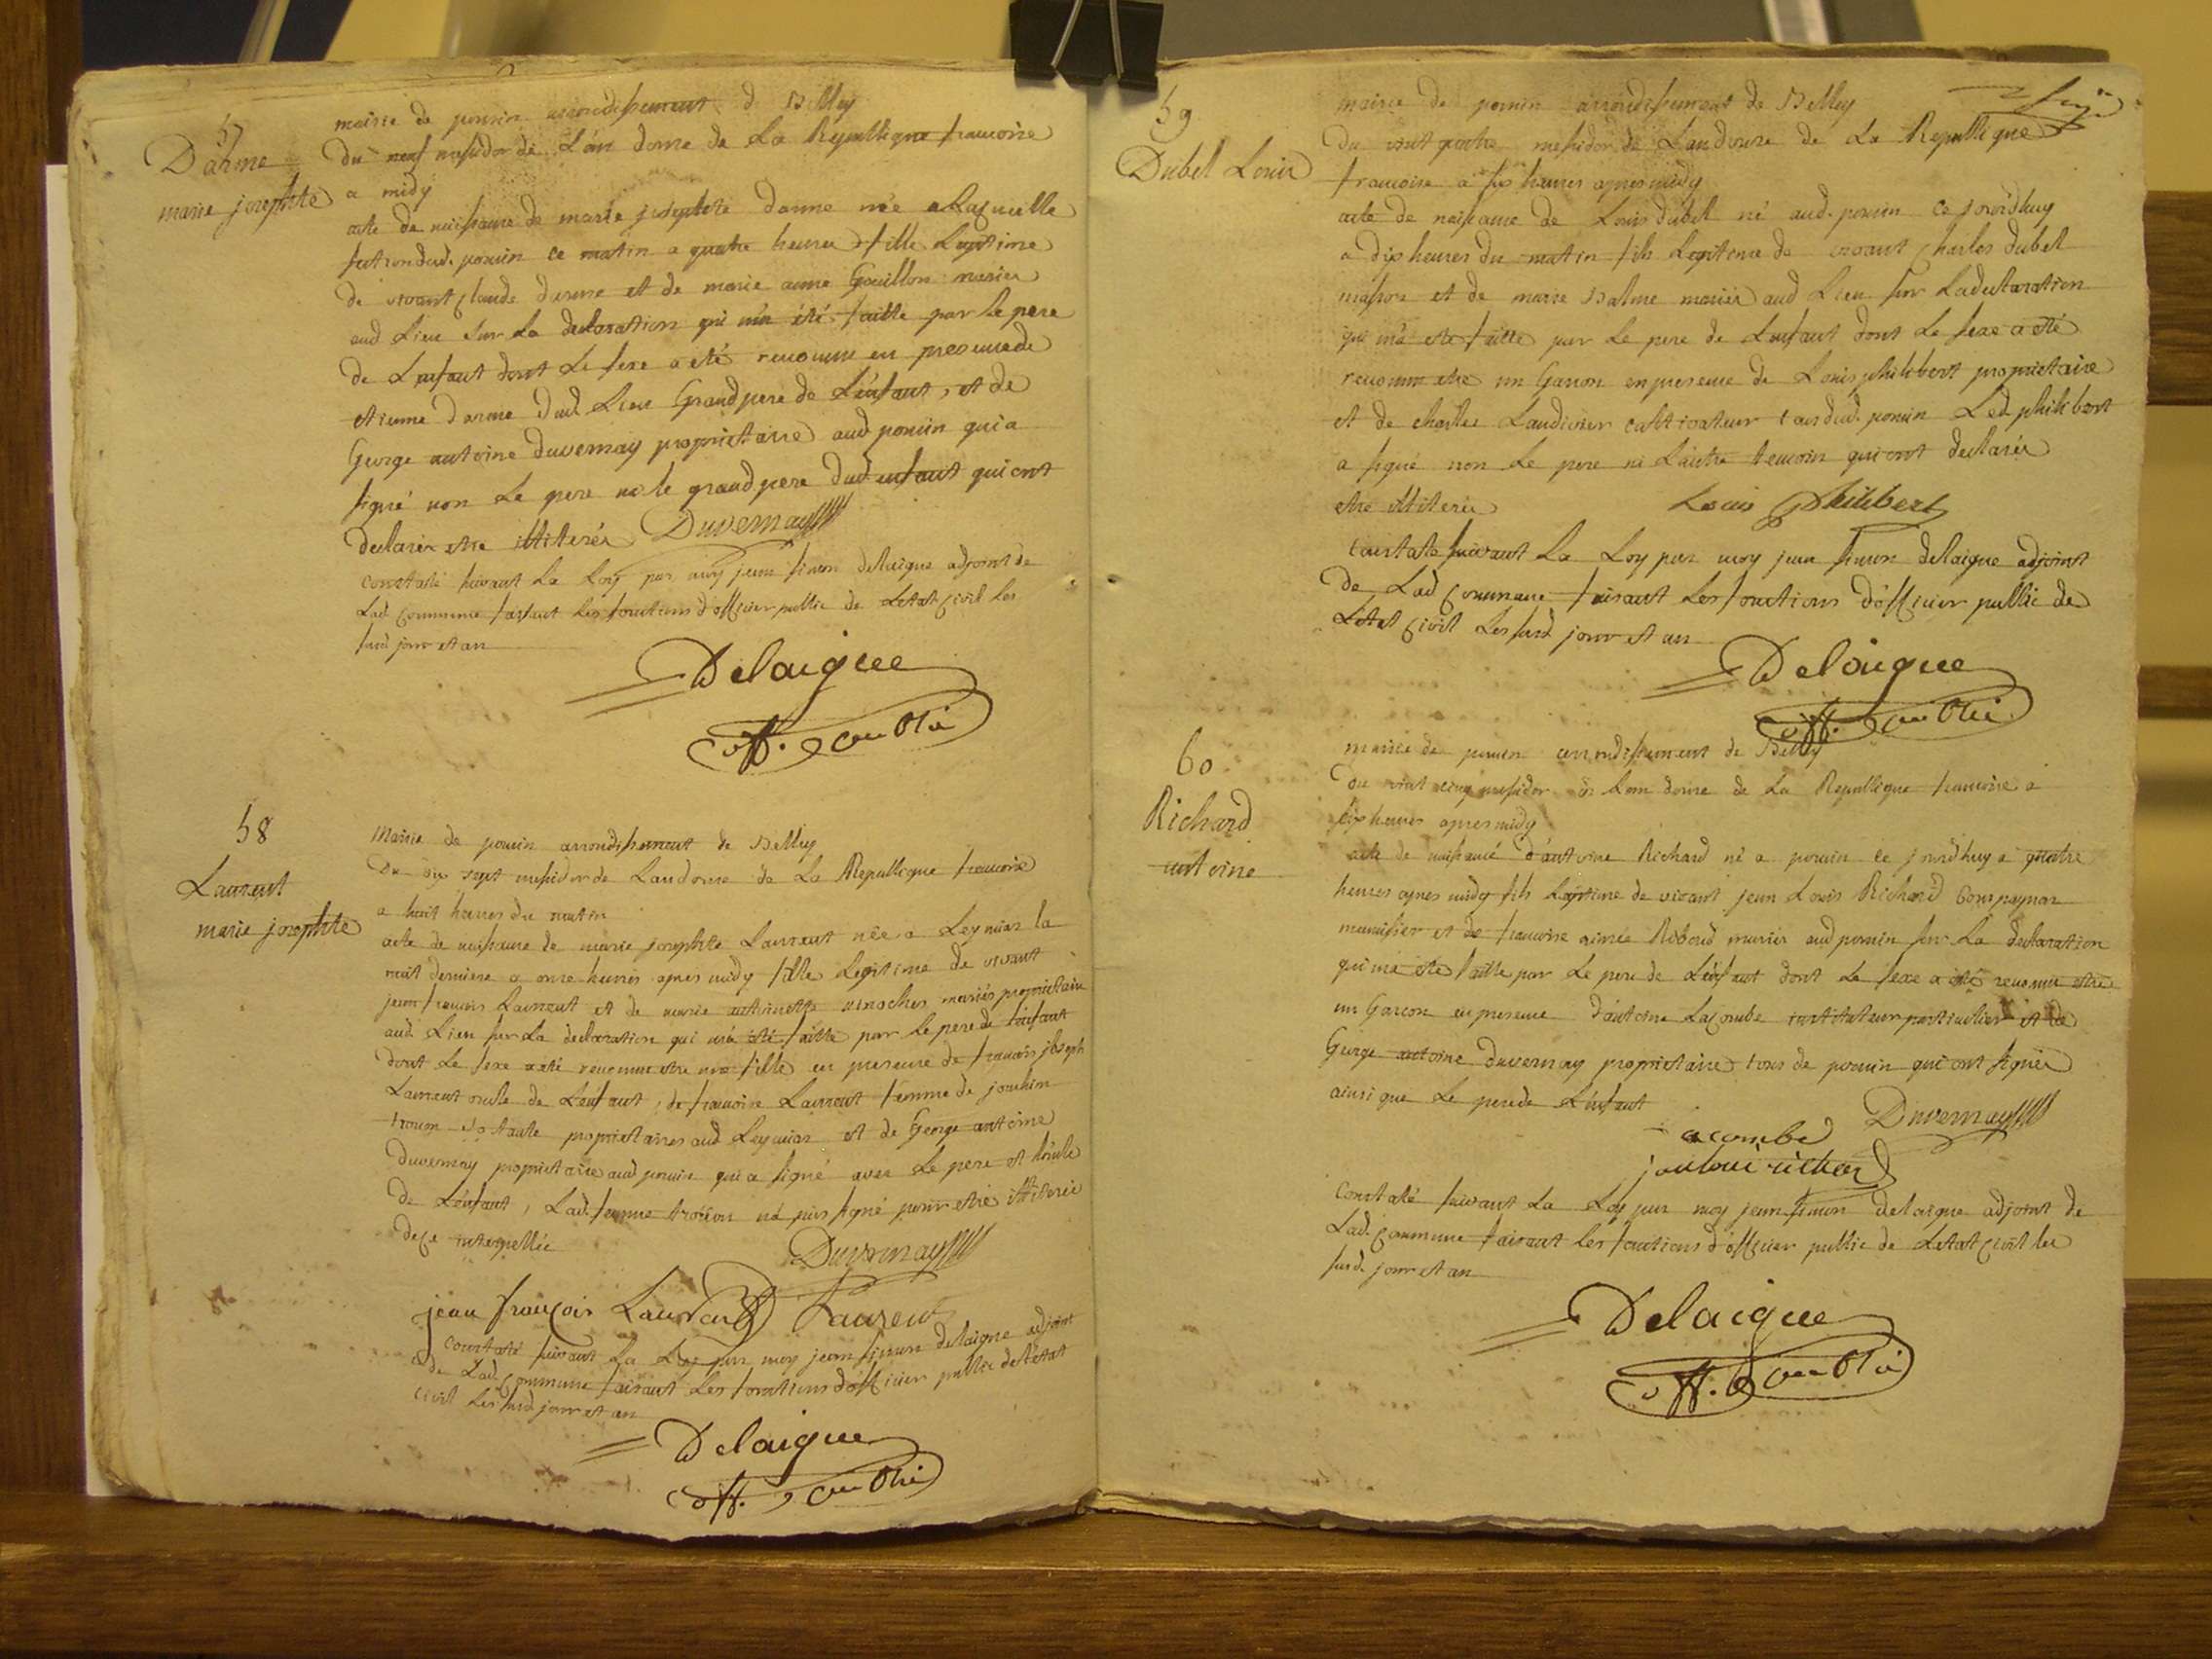 57
D'arme
marie josephte
mairie de poncin arrondissement de Belley
Du neuf messidor de L'an douze de La Republique francoise
a midy
acte de naissance de marie josephte darme née a
dud. poncin ce matin a quatre heures fille Legitime
de vivant Claude darme et de marie anne Gouillon mariés
aud Lieu sur La declaration qui m'a été faitte par le pere
de L'enfant dont Le sexe a eté reconnu en presence de
etienne darme dud. Lieu Grand pere de L'enfant, et de
George antoine duvernay proprietaire aud poncin qui a
signé non Le pere ni le grand pere dud enfant qui ont
declarés etre illiterés Duvernay
Constaté suivant La Loy par moy jean simon delaigue adjoint de
Lad. Commune faisant Les fonctions d'officier public de Letat Civil les
susd. jour et an
Delaigue
off. public
58
Laurent
marie josephte
Mairie de poncin arrondissement de Belley
Du dix sept messidor de Landouze de La Republique francoise
a huit heures du matin
acte de naissance de marie josephte Laurent née a Leymiaz la
nuit derniere a onze heures apres midy fille Legitime de vivant
jean francois Laurent et de marie antoinette mariés proprietaire
aud. Lieu sur La declaration qui m'a été faitte par le pere de l'enfant
dont Le sexe a eté reconnu etre une fille en presence de francois joseph
Laurent oncle de L'enfant, de francoise Laurent femme de joachim
sa tante proprietaires aud Leymiaz et de George antoine
Duvernay proprietaire aud poncin qui a signé avec Le pere et l'oncle
de L'enfant, Lad. femme n'a pas signé pour etre illiterée
de ce interpellée
Duvernay
jean françois Laurent Laurent
Constaté suivant La Loy par moy jean simon delaigue adjoint
de Lad. Commune faisant Les fonctions d'officier public de Letat
Civil Les susd jour et an
Delaigue
off. public
59
Dubel Louis
mairie de poncin arrondissement de Belley
Du vint quatre messidor de Landouze de La Republique
francoise a six heures apres midy
acte de naissance de Louis dubel né aud. poncin ce jourd'huy
a dix heures du matin fils Legitime de vivant Charles dubel
masson et de marie Balme mariés aud Lieu sur La declaration
qui m'a eté faitte par Le pere de L'enfant dont Le sexe a eté
reconnu etre un Garcon en presence de Louis philibert proprietaire
et de charles Laudinier cultivateur tous dud. poncin Led. philibert
a signé non Le pere ni L'autre temoin qui ont declarés
etre illiterés
Louis Philibert
Constaté suivant La Loy par moy jean simon delaigue adjoint
de Lad Commune faisant Les fonctions d'officier public de
Letat Civil Les susd. jour et an
Delaigue
off. public
60
Richard
antoine
mairie de poncin arrondissement de Belley
Du vint cinq messidor de Lan douze de La Republique francoise a
six heures apres midy
acte de naissance d'antoine Richard né a poncin ce jourd'huy a quatre
heures apres midy fils Legitime de vivant jean Louis Richard Compagnon
menuisier et de francoise aimée Riboud mariés aud poncin sur La declaration
qui m'a eté faitte par Le pere de L'enfant dont Le sexe a eté reconnu etre
un Garcon en presence d'antoine Lacombe instituteur particulier et de
George antoine duvernay proprietaire tous de poncin qui ont signés
ainsi que Le pere de L'enfant
Duvernay
acombe
jan loui richard
Constaté suivant La Loy par moy jean simon delaigue adjoint de
Lad. Commune faisant les fonctions d'officier public de Letat Civil les
susd. jour et an
Delaigue
off. public